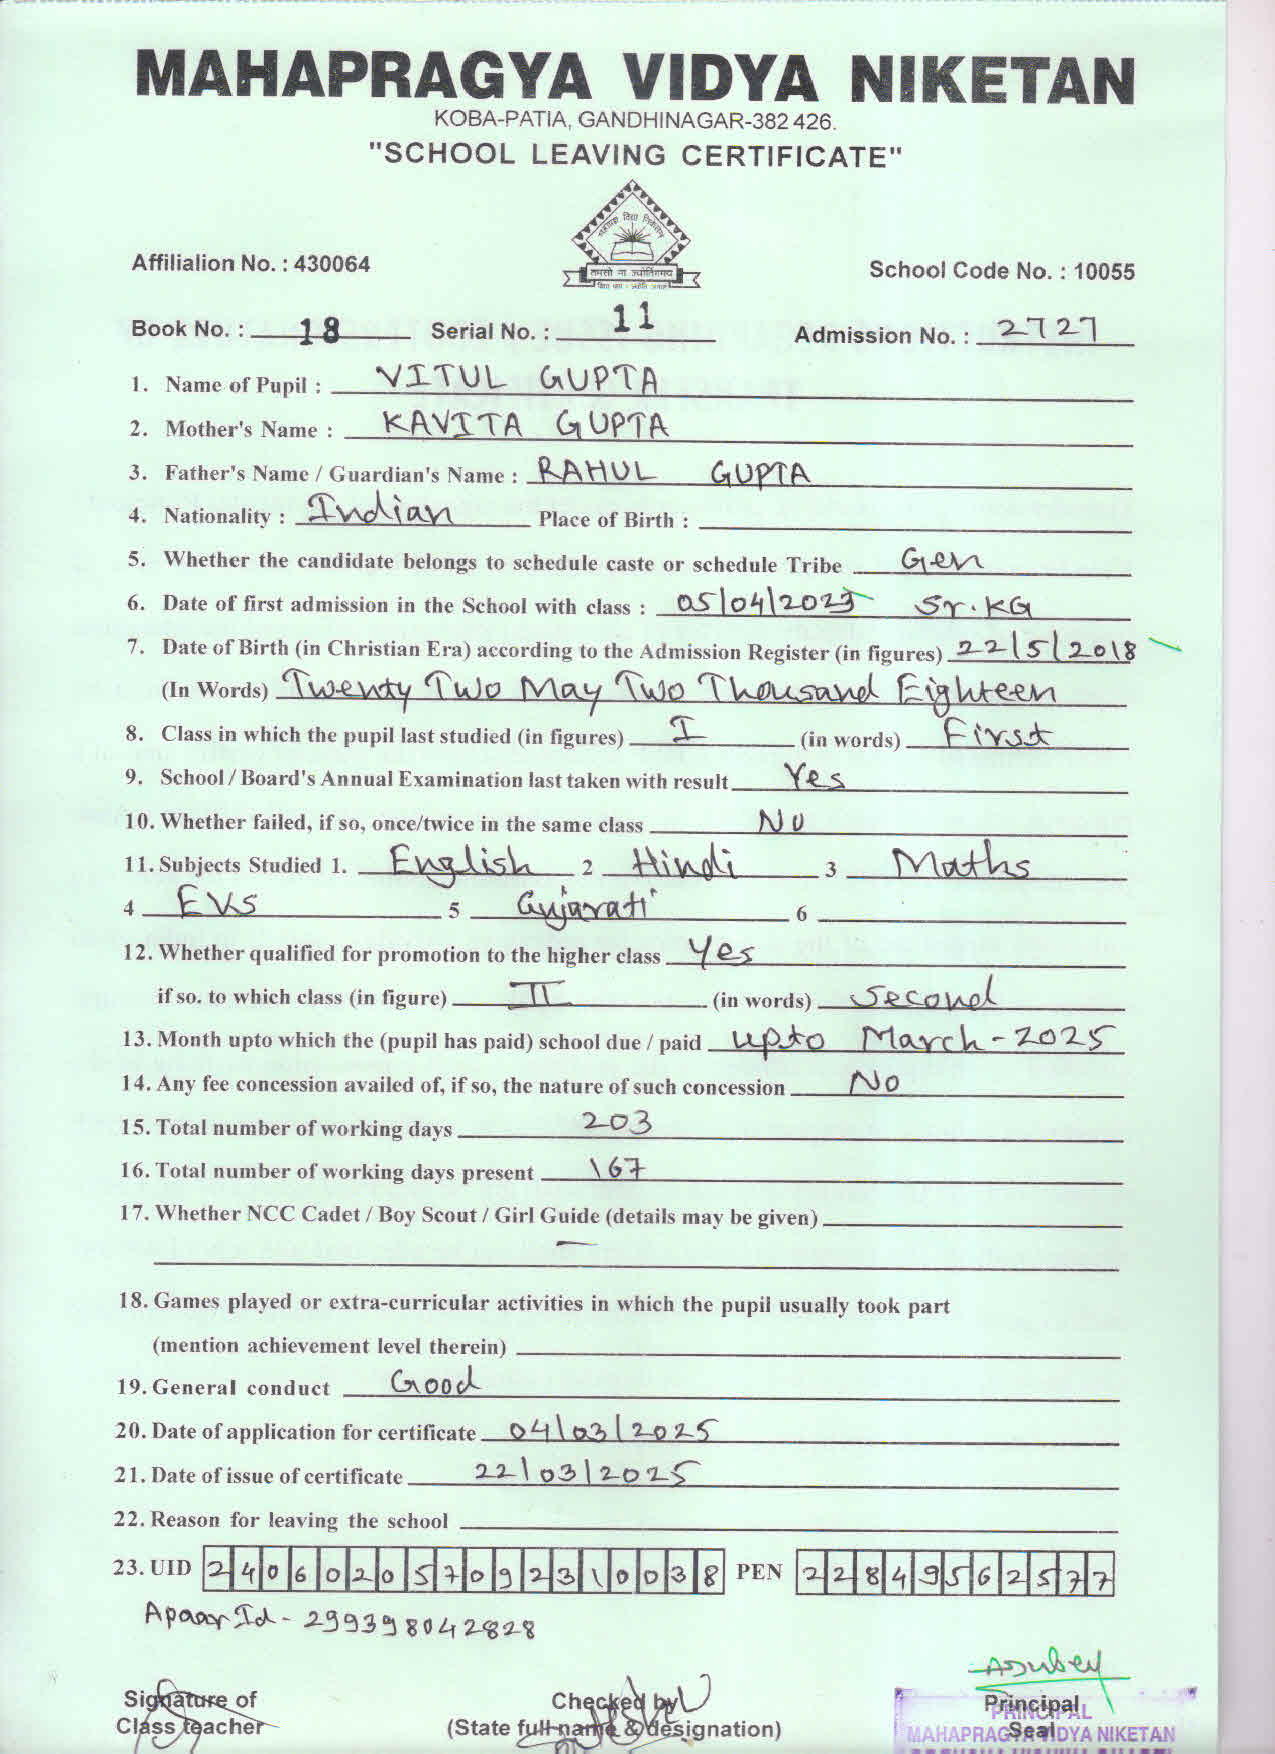 MAHAPRAGYA VIDYA NIKETAN
KOBA-PATIA, GANDHINAGAR-382 426.
"SCHOOL LEAVING CERTIFICATE"
महाप्रज्ञ विद्या निकेतन
तमसो मा ज्योतिर्गमय
Affilialion No. : 430064
School Code No. : 10055
Book No. : 18 Serial No. : 11 Admission No. : 2727
1. Name of Pupil : VITUL GUPTA
2. Mother's Name : KAVITA GUPTA
3. Father's Name / Guardian's Name : RAHUL GUPTA
4. Nationality : Indian Place of Birth :
5. Whether the candidate belongs to schedule caste or schedule Tribe Gen
6. Date of first admission in the School with class : 05/04/2023 Sr.KG
7. Date of Birth (in Christian Era) according to the Admission Register (in figures) 22/5/2018
(In Words) Twenty Two May Two Thousand Eighteen
8. Class in which the pupil last studied (in figures) I (in words) First
9. School / Board's Annual Examination last taken with result Yes
10. Whether failed, if so, once/twice in the same class No
11. Subjects Studied 1. English 2 Hindi 3 Maths
4 EVS 5 Gujarati 6
12. Whether qualified for promotion to the higher class Yes
if so. to which class (in figure) II (in words) Second
13. Month upto which the (pupil has paid) school due / paid upto March-2025
14. Any fee concession availed of, if so, the nature of such concession No
15. Total number of working days 203
16. Total number of working days present 167
17. Whether NCC Cadet / Boy Scout / Girl Guide (details may be given)
—
18. Games played or extra-curricular activities in which the pupil usually took part
(mention achievement level therein)
19. General conduct Good
20. Date of application for certificate 04/03/2025
21. Date of issue of certificate 22/03/2025
22. Reason for leaving the school
23. UID 240602057092310038 PEN 22849562577
Apaar Id - 299398042828
ADubey
Signature of Checked by Principal
Class teacher (State full name & designation) Seal
PRINCIPAL
MAHAPRAGYA VIDYA NIKETAN